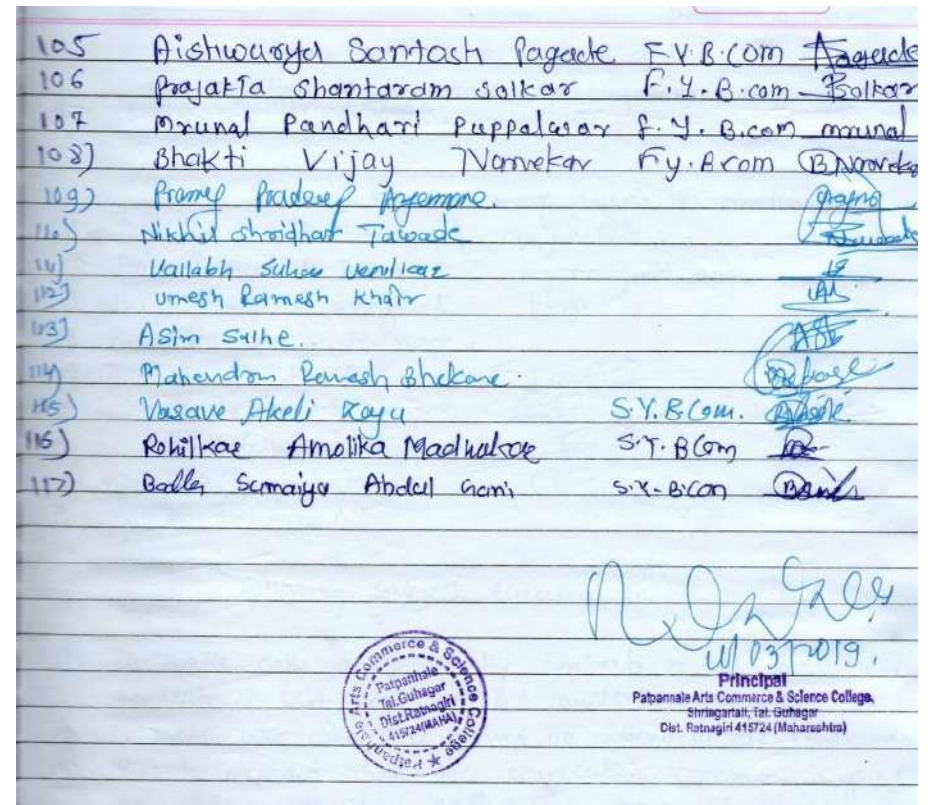 105 Aishwarya Santosh Pagade F.Y.B.Com Pagade
106 Prajakta Shantaram Salkar F.Y.B.com Salkar
107 Mrunal Pandhari Puppalwar F.Y.B.com mrunal
108) Bhakti Vijay Narvekar F.y.Bcom BNarvekar
109) Pradeep
110) Nikhil Shridhar Tawade
111) Vallabh Suhas
112) Umesh Ramesh Khair
113) Asim Surhe.
114) Mahendra Ramesh Bhekare.
115) Vasave Akeli Raju S.Y.B.Com.
116) Rohilkar Amolika Madhukar S.Y.BCom
117) Sumaiya Abdul Gani S.Y.B.Com
11/03/2019.
Principal
Patpannale Arts Commerce & Science College,
Shringartali, Tal. Guhagar
Dist. Ratnagiri 415724 (Maharashtra)
Patpanhale Arts Commerce & Science College
Patpanhale
Tal.Guhagar
Dist.Ratnagiri
415724(MAHA)